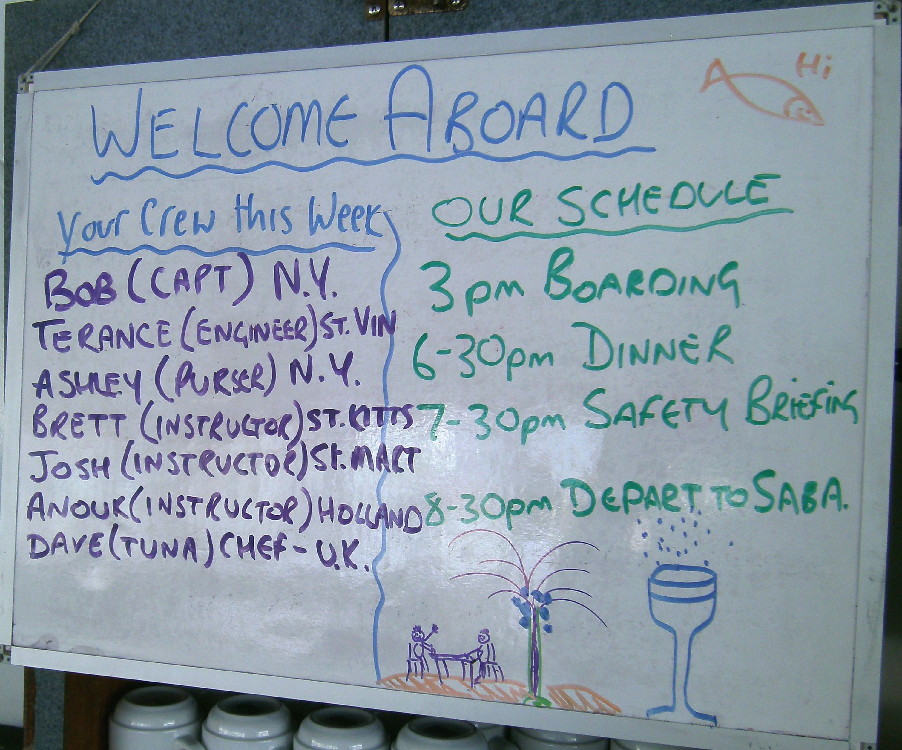 Hi
WELCOME ABOARD
Your Crew this Week
BOB (CAPT) N.Y.
TERANCE (ENGINEER) ST. VIN
ASHLEY (PURSER) N.Y.
BRETT (INSTRUCTOR) ST. KITTS
JOSH (INSTRUCTOR) St. MART
ANOUK (INSTRUCTOR) HOLLAND
DAVE (TUNA) CHEF - U.K.
OUR SCHEDULE
3pm BOARDING
6-30pm DINNER
7-30pm SAFETY BRIEFING
8-30pm DEPART TO SABA.